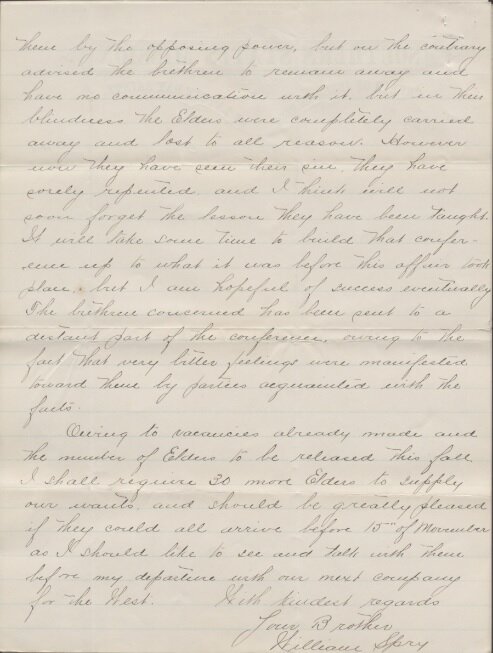 them by the opposing power, but on the contrary
advised the brethren to remain away and
have no communication with it, but in their
blindness the Elders were completely carried
away and lost to all reason. However
now they have seen their sin, they have
sorely repented, and I think will not
soon forget the lesson they have been taught.
It will take some time to build that confer-
ence up to what it was before this affair took
place, but I am hopeful of success eventually
The brethren concerned has been sent to a
distant part of the conference, owing to the
fact that very bitter feelings were manifested
toward them by parties acquainted with the
facts.
Owing to vacancies already made and
the number of Elders to be released this fall
I shall require 30 more Elders to supply
our wants, and should be greatly pleased
if they could all arrive before 15th of November
as I should like to see and talk with them
before my departure with our next company
for the West. With kindest regards
Your Brother
William Spry